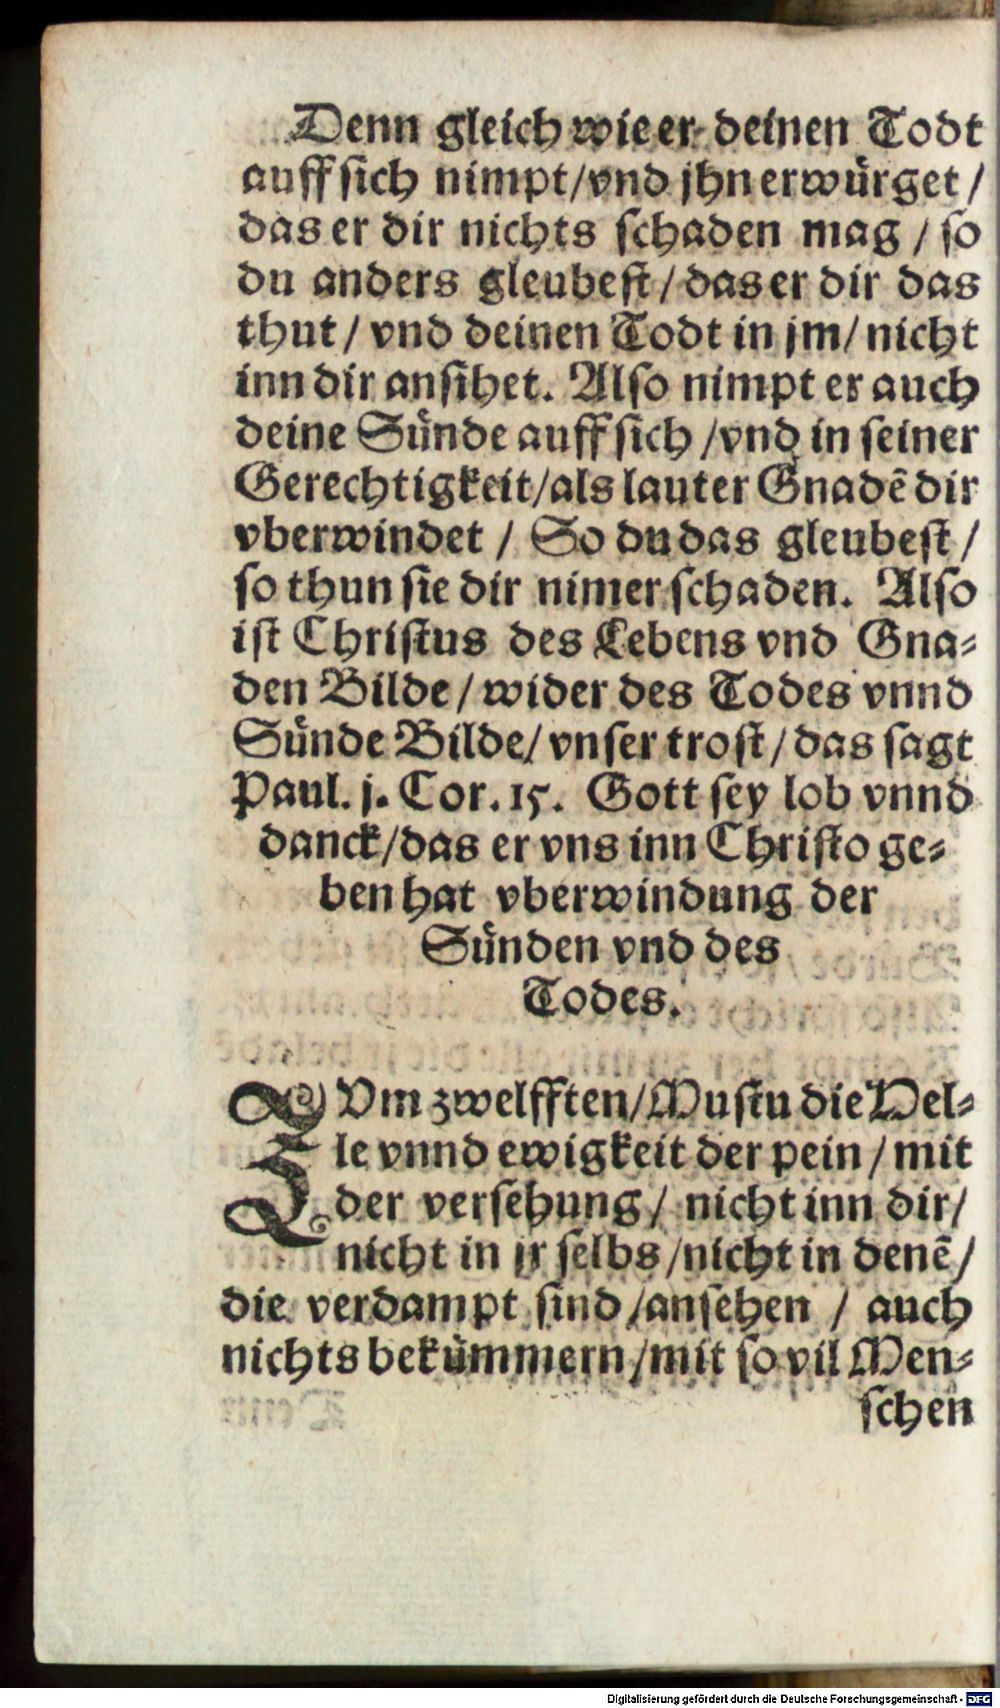 Denn gleich wie er deinen Todt
auff sich nimpt/vnd jhn erwürget/
das er dir nichts schaden mag / so
du anders gleubest/das er dir das
thut/ vnd deinen Todt in jm/ nicht
inn dir ansihet. Also nimpt er auch
deine Sünde auff sich /vnd in seiner
Gerechtigkeit/als lauter Gnadē dir
vberwindet / So du das gleubest /
so thun sie dir nimer schaden. Also
ist Christus des Lebens vnd Gna-
den Bilde/ wider des Todes vnnd
Sünde Bilde/ vnser trost/das sagt
Paul. j. Cor. 15. Gott sey lob vnnd
danck/das er vns inn Christo ge-
ben hat vberwindung der
Sünden vnd des
Todes.
ZVm zwelfften/Mustu die Hel-
le vnnd ewigkeit der pein / mit
der versehung/ nicht inn dir/
nicht in jr selbs /nicht in denē/
die verdampt sind/ansehen / auch
nichts bekümmern/mit so vil Men-
schen
Digitalisierung gefördert durch die Deutsche Forschungsgemeinschaft - DFG